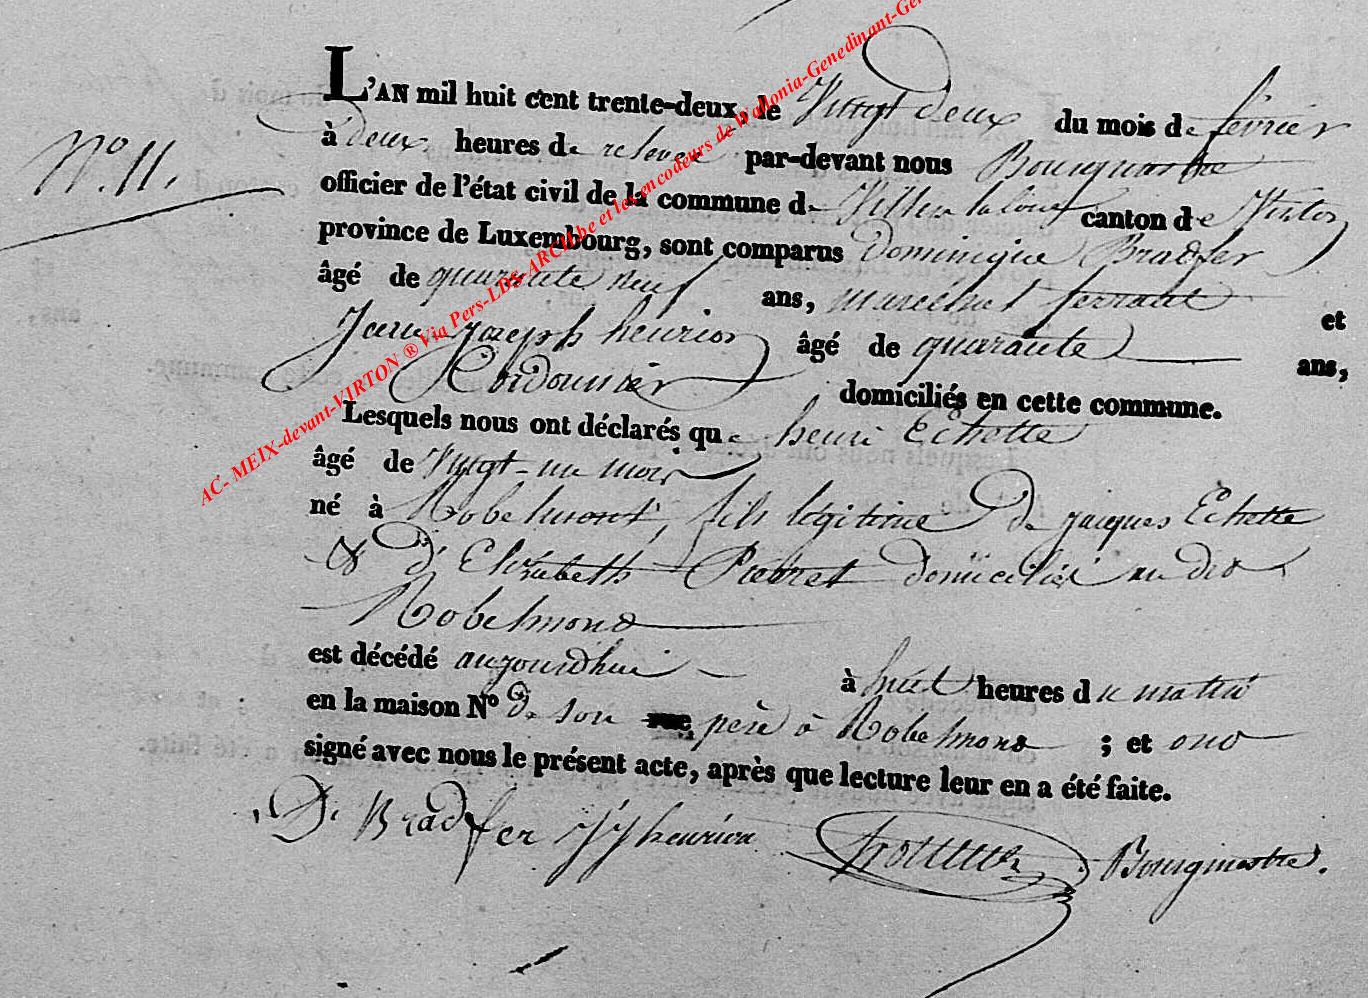 L'AN mil huit cent trente-deux, le Vingt deux du mois de février
N.° 11.
à deux heures de relevée par-devant nous Bourguestre
officier de l'état civil de la commune de Villers la loue canton de Virton
province de Luxembourg, sont comparus Dominique Bradfer
âgé de quarante neuf ans, marechal ferrant et
Jean joseph henrion âgé de quarante ans,
Cordonnier domiciliés en cette commune.
Lesquels nous ont déclarés que henri Echette
âgé de Vingt-un mois
né à Robelmont, fils légitime de jacques Echette
& d'Elizabeth Pierret domicilié au dit
Robelmond
est décédé aujourdhui à huit heures du matin
en la maison N° de son rue père à Robelmond ; et ont
signé avec nous le présent acte, après que lecture leur en a été faite.
D. Bradfer JJ henrion Bourgmestre.
AC- MEIX-devant-VIRTON ® Via Pers-LDS-ARCH.be et les encodeurs de Wallonia-Genedinant-Ge